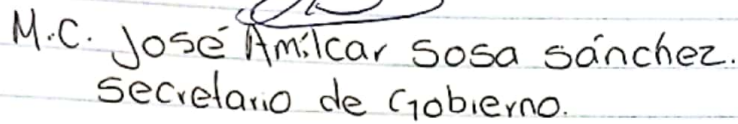 M.C. José Amílcar Sosa sánchez.
Secretario de Gobierno.